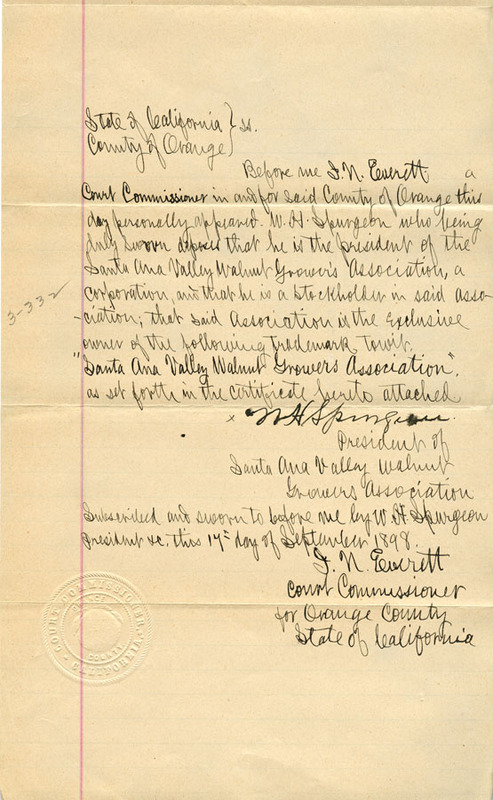 State of California } ss.
County of Orange }
Before me I. N. Everett a
Court Commissioner in and for said County of Orange this
day personally appeared W. H. Spurgeon who being
duly sworn deposes that he is the president of the
Santa Ana Valley Walnut Growers Association, a
corporation, and that he is a stockholder in said asso-
3-332
ciation; that said Association is the exclusive
owner of the following trademark towit.
"Santa Ana Valley Walnut Growers Association".
as set forth in the certificate hereto attached
x W H Spurgeon
President of
Santa Ana Valley Walnut
Growers Association
Subscribed and sworn to before me by W. H. Spurgeon
President &c. this 17th day of September 1898.
I. N. Everett
Court Commissioner
for Orange County
State of California
COURT COMMISSIONER
COUNTY
CALIFORNIA